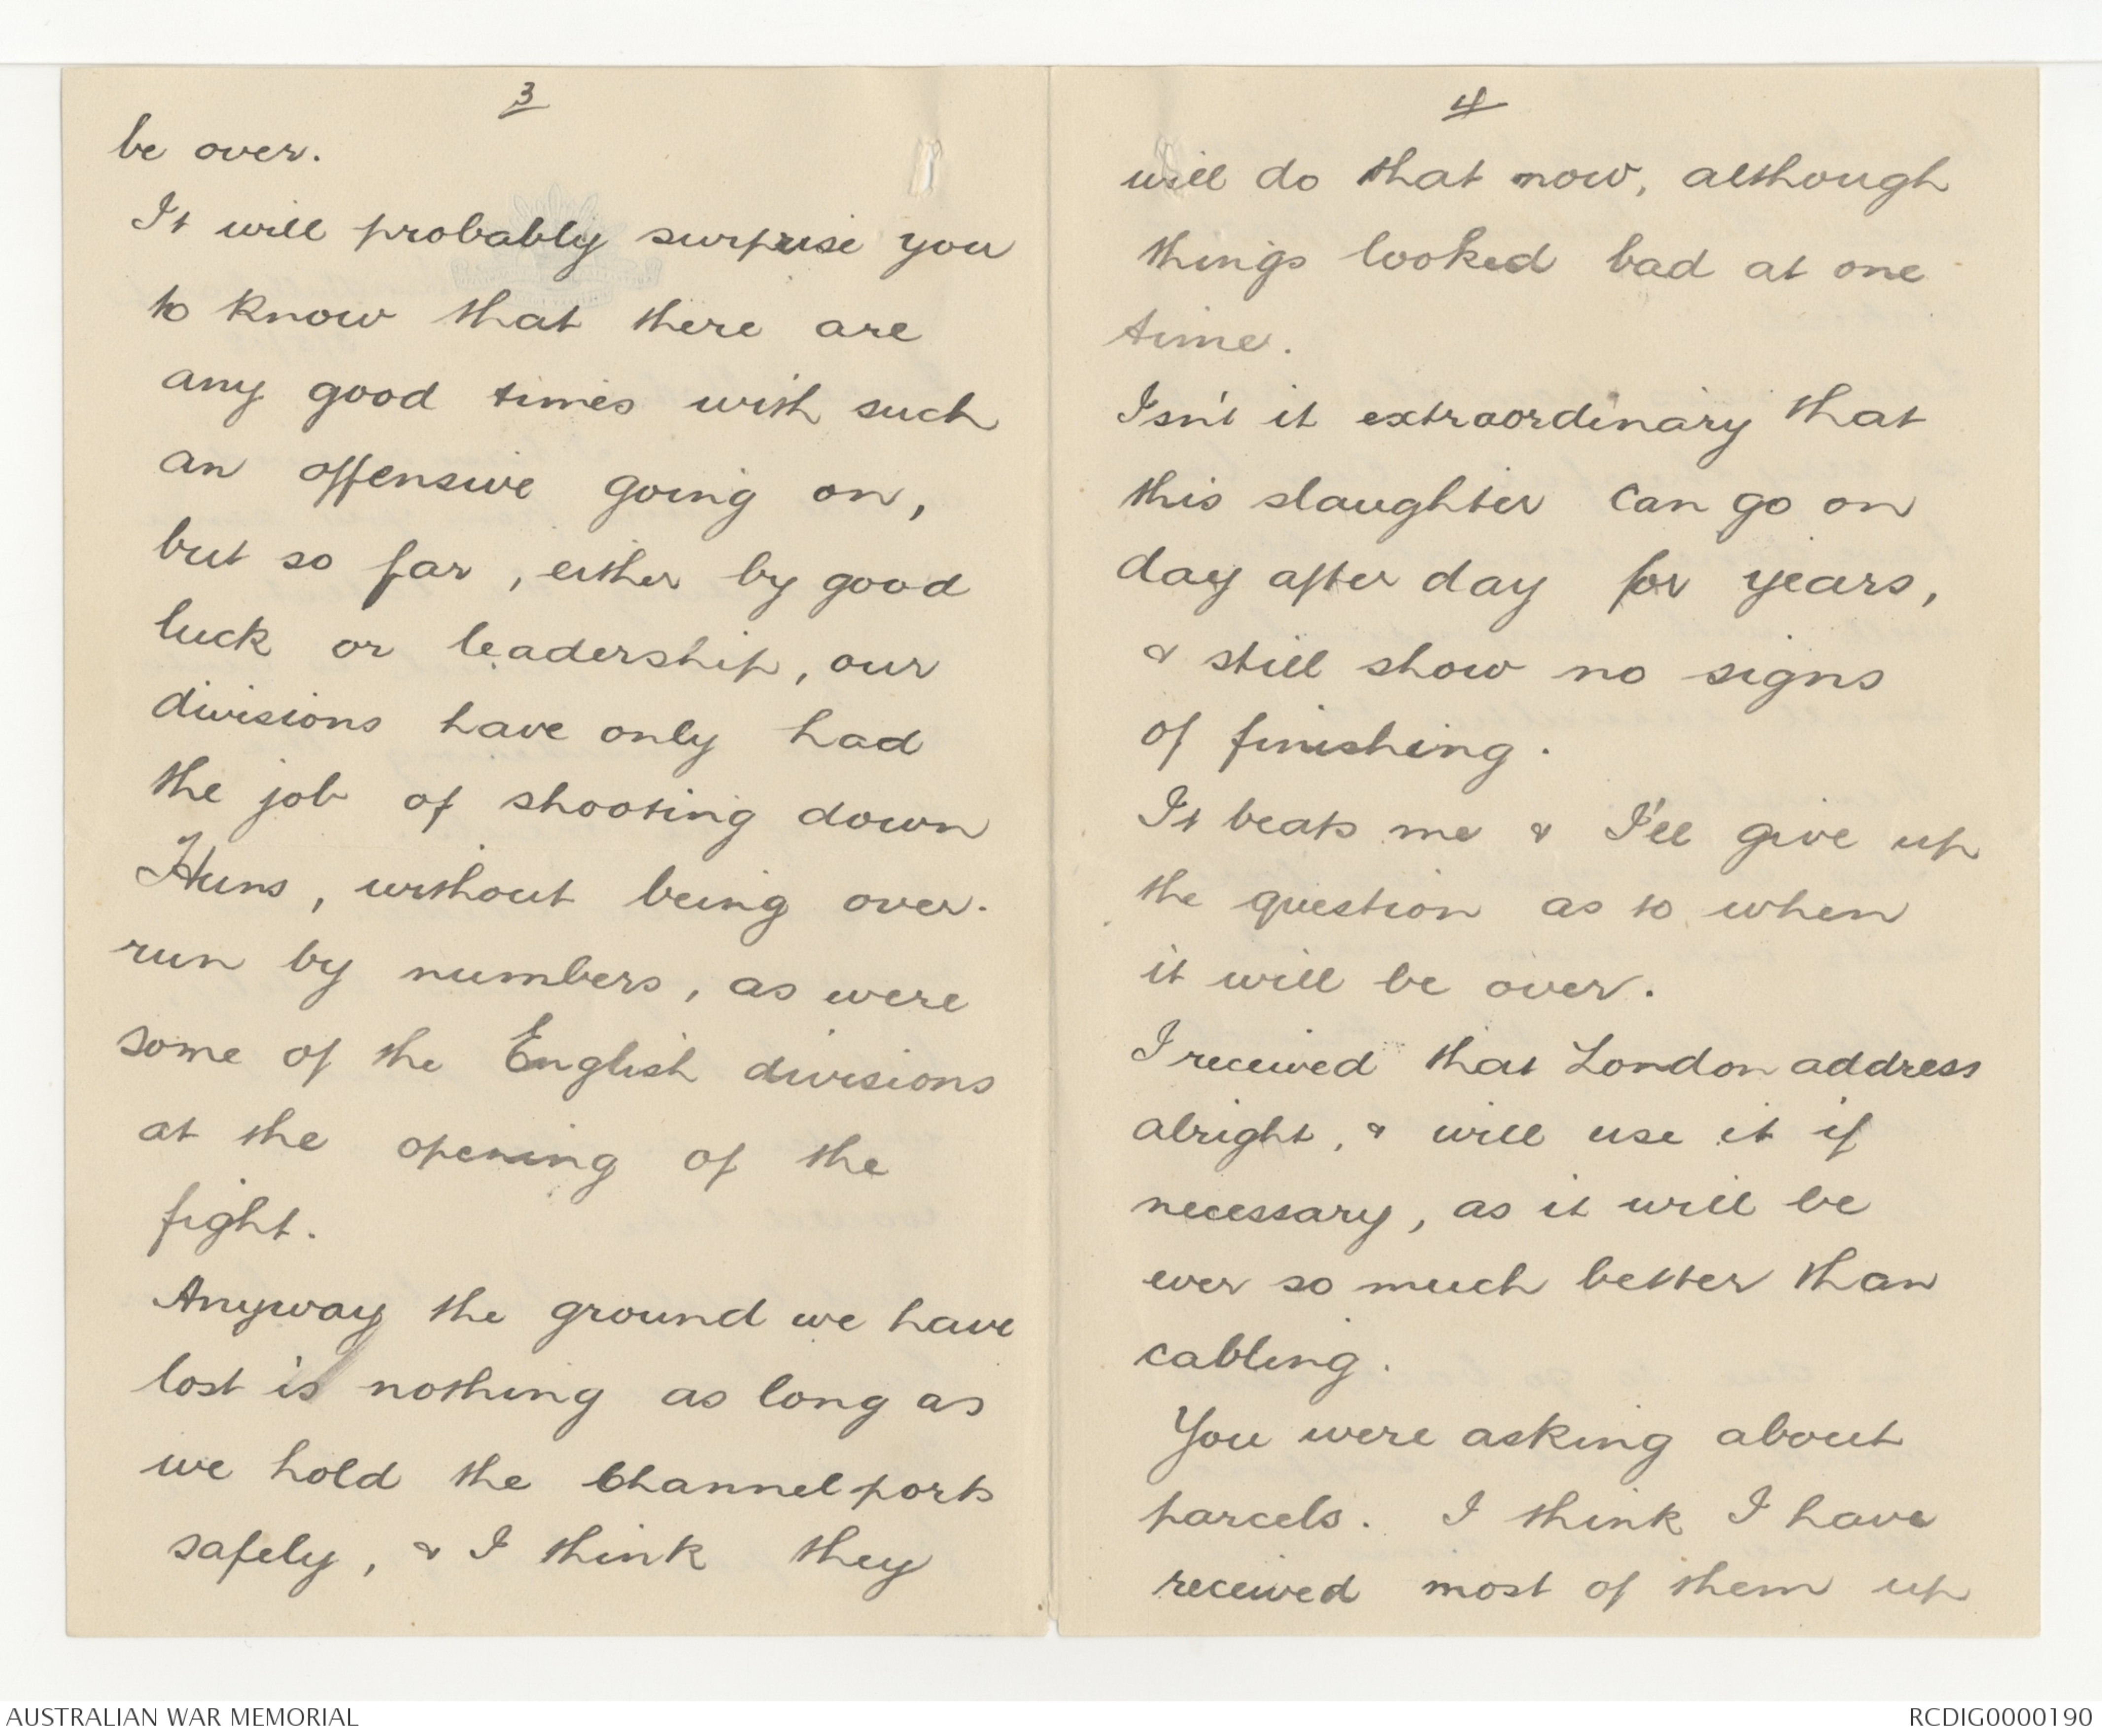 3
be over.
It will probably surprise you
to know that there are
any good times with such
an offensive going on,
but so far, either by good
luck or leadership, our
divisions have only had
the job of shooting down
Huns, without being over-
run by numbers, as were
some of the English divisions
at the opening of the
fight.
Anyway the ground we have
lost is nothing as long as
we hold the Channel ports
safely, & I think they
4
will do that now, although
things looked bad at one
time.
Isn't it extraordinary that
this slaughter can go on
day after day for years,
& still show no signs
of finishing.
It beats me & I'll give up
the question as to when
it will be over.
I received that London address
alright, & will use it if
necessary, as it will be
ever so much better than
cabling.
You were asking about
parcels. I think I have
received most of them up
AUSTRALIAN WAR MEMORIAL
RCDIG0000190